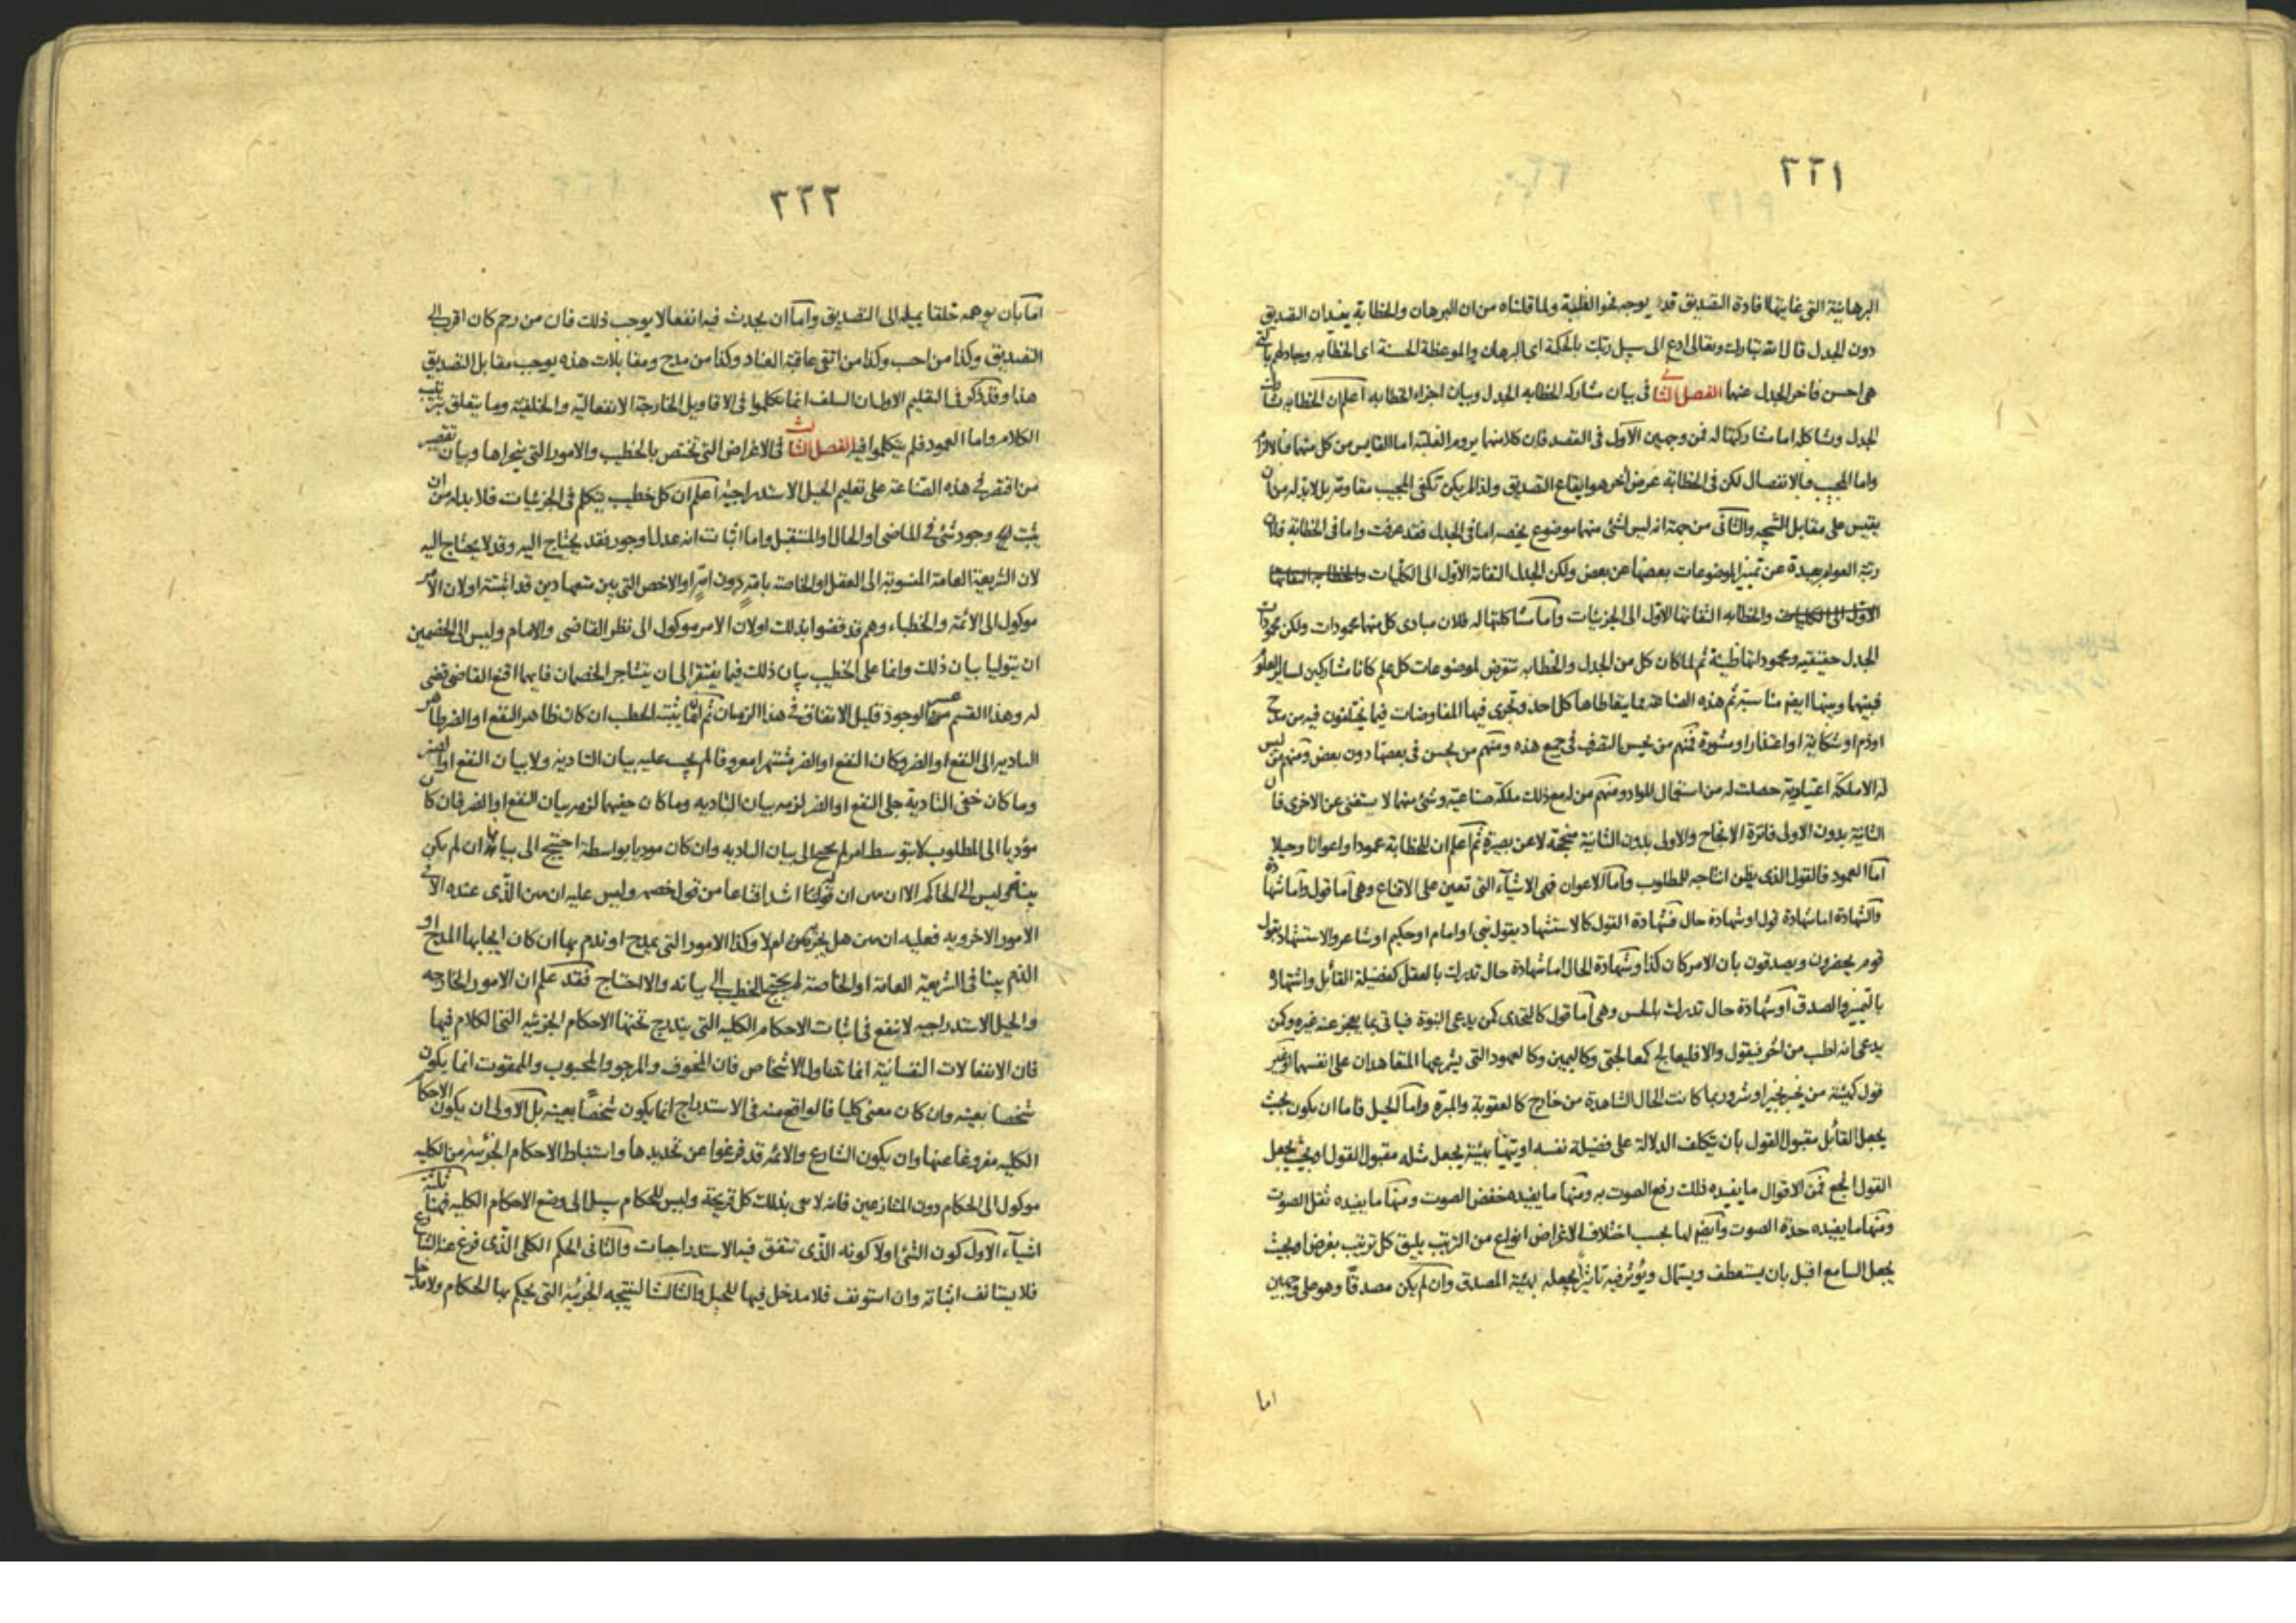 ٢٢١
البرهانية التى غايتها افادة التصديق قد يوجه نحو الغلبة ولما قلناه من ان البرهان والخطابة يفيدان التصديق
دون الجدل قال الله تبارك وتعالى ادع الى سبيل ربك بالحكمة اى البرهان والموعظة الحسنة اى الخطابه وجادلهم بالتى
هى احسن فاخر الجدل عنهما الفصل الثانى فى بيان مشاركه الخطابه الجدل وبيان اجزاء الخطابه اعلم ان الخطابه تشارك
الجدل وتشاكله اما مشاركتها له فمن وجهين الاول فى القصد فان كلا منهما يروم الغلبة اما القايس من كل منهما فبالالزام
واما المجيب فبالانفصال لكن فى الخطابة غرض اخر هو ايقاع التصديق ولذا لم يكن تكفى المجيب مقاومته بل لابد له من ان
يقيس على مقابل النتيجه والثانى من جهة انه ليس لشئ منهما موضوع يخصه اما فى الجدل فقد عرفت واما فى الخطابة فلان
رتبة العوام بعيدة عن تميز الموضوعات بعضها عن بعض ولكن الجدل التفاته الاول الى الكليات والخطابه التفاتها
الاول الى الكليات والخطابه التفاتها الاول الى الجزئيات واما مشاكلتها له فلان مبادى كل منهما محمودات ولكن محمودات
الجدل حقيقيه ومحموداتها ظنية ثم لما كان كل من الجدل والخطابه تتعرض لموضوعات كل علم كانا مشاركين لساير العلوم
فبينهما وبينها ايضا مناسبة ثم هذه الصناعة مما يتعاطاها كل احد وتجرى فيها المفاوضات فيما يختلفون فيه من مدح
اوذم او شكاية او اعتذار او مشورة فمنهم من يحسن التصرف فى جميع هذه ومنهم من يحسن فى بعضها دون بعض ومنهم من ليس
له الا ملكة اعتيادية حصلت له من استعمال المواد ومنهم من له مع ذلك ملكة صناعية وشئ منهما لا يستغنى عن الاخرى فان
الثانية بدون الاولى فاترة الانجاح والاولى بدون الثانية منجحة لا عن بصيرة ثم اعلم ان للخطابة عمودا واعوانا وحيلا
اما العمود فالقول الذى يظن انتاجه للمطلوب واما الاعوان فهى الاشياء التى تعين على الاقناع وهى اما قول واما شهادة
والشهادة اما شهادة قول او شهادة حال فشهادة القول كالاستشهاد بقول نبى او امام او حكيم او شاعر والاستشهاد بقول
قوم يحضرون ويصدقون بان الامر كان كذا وشهادة الحال اما شهادة حال تدرك بالعقل كفضيلة القائل واشتهاره
بالتميز والصدق او شهادة حال تدرك بالحس وهى اما قول كالتحدى كمن يدعى النبوة فياتى بما يعجز عنه غيره وكمن
يدعى انه اطب من اخر فيقول والا فليعالج كمعالجتى وكاليمين وكالعهود التى يشرعها المتعاهدان على انفسهما او غير
قول كهيئة من يخبر بخير او شر وربما كانت الحال الشاهدة من خارج كالعقوبة والمبرة واما الحيل فاما ان يكون بحيث
يجعل القائل مقبول القول بان يتكلف الدلالة على فضيلة نفسه او يتهيأ بهيئة يجعل مثله مقبول القول او بحيث يجعل
القول انجع فمن الاقوال ما يفيده ذلك رفع الصوت به ومنها ما يفيده خفض الصوت ومنها ما يفيده ثقل الصوت
ومنها ما يفيده حدة الصوت وايضا لها بحسب اختلاف الاغراض انواع من الترتيب يليق كل ترتيب بغرض او بحيث
يجعل السامع اقبل بان يستعطف ويستمال ويؤثر فيه تاثيرا يجعله بهيئة المصدق وان لم يكن مصدقا وهو على وجهين
اما
٢٢٢
اما بان يوهمه خلقا يميله الى التصديق واما ان يحدث فيه انفعالا يوجب ذلك فان من رحم كان اقرب الى
التصديق وكذا من احب وكذا من اتقى عاقبة العناد وكذا من مدح ومقابلات هذه يوجب مقابل التصديق
هذا وقد ذكر فى التعليم الاول ان السلف انما تكلموا فى الاقاويل الخارجة الانفعاليه والخلقية وما يتعلق بترتيب
الكلام واما العمود فلم يتكلموا فيه الفصل الثالث فى الاغراض التى تختص بالخطيب والامور التى يتحراها وبيان تقصير
من اقتصر فى هذه الصناعة على تعليم الحيل الاستدراجية اعلم ان كل خطيب يتكلم فى الجزئيات فلا بد له من ان
يثبت وجود شئ فى الماضى او الحال او المستقبل واما اثبات انه عدل او جور فقد يحتاج اليه وقد لا يحتاج اليه
لان الشريعة العامة المنسوبة الى العقل او الخاصة بامة دون امة او الاخص التى بين متعهادين قد اثبتته او لان الامر
موكول الى الائمة والخطباء وهم قد قضوا بذلك او لان الامر موكول الى نظر القاضى والامام وليس الى الخصمين
ان يتوليا بيان ذلك وانما على الخطيب بيان ذلك فيما يفتقر الى ان يتشاجر الخصمان فايهما اقنع القاضى قضى
له وهذا القسم عسر الوجود قليل الاتفاق فى هذا الزمان ثم انما يثبت الخطيب ان كان ظاهر النفع او الضر ظاهر
التاديه الى النفع او الضر وكان النفع او الضر مشتهرا معروفا لم يجب عليه بيان التادية ولا بيان النفع او الضر
وما كان خفى التادية جلى النفع او الضر لزمه بيان التاديه وما كان خفيهما لزمه بيان النفع او الضر فان كان
مؤديا الى المطلوب لا بتوسط امر لم يحتج الى بيان التاديه وان كان موديا بواسطة احتيج الى بيانها ان لم يكن
بينا وليس الى الحاكم الا ان يبين ان قولنا اشد اقناعا من قول خصمه وليس عليه ان يبين الذى عنده الا فى
الامور الاخرويه فعليه ان يبين هل ام لا وكذا الامور التى يمدح او يذم بها ان كان ايجابها المدح او
الذم بينا فى الشريعة العامة او الخاصة لم يحتج الخطيب الى بيانه والا احتاج فقد علم ان الامور الخارجه
والحيل الاستدراجيه لا ينفع فى اثبات الاحكام الكليه التى يندرج تحتها الاحكام الجزئيه التى الكلام فيها
فان الانفعالات النفسانية انما تتناول الاشخاص فان المخوف والمرجو والمحبوب والممقوت انما يكون
شخصا بعينه وان كان معنى كليا فالواقع منه فى الاستدراج انما يكون شخصا بعينه بل الاولى ان يكون الاحكام
الكليه مفروغا عنها وان يكون الشارع والائمة قد فرغوا عن تحديدها واستنباط الاحكام الجزئية من الكليه
موكول الى الحكام دون المتنازعين فانه لا يفى بذلك كل قريحة وليس للحكام سبيل الى وضع الاحكام الكليه فهنا ثلثة
اشياء الاول كون الشئ او لا كونه الذى تتفق فيه الاستدراجات والثانى الحكم الكلى الذى فرغ عنه الشارع
فلا يستانف اثباته وان استونف فلا مدخل فيها للحيل والثالث النتيجه الجزئية التى يحكم بها الحكام ولا مدخل